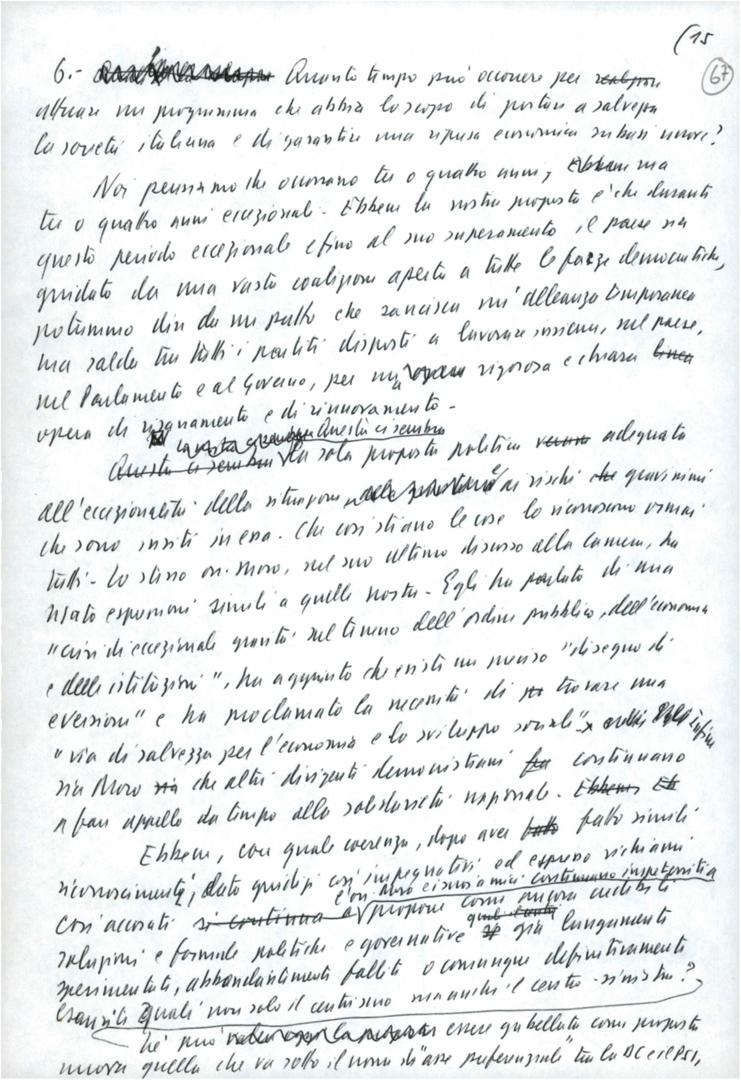 (15
67
6.- Quanto tempo può occorrere per
attuare un programma che abbia lo scopo di portare a salvezza
la società italiana e di garantire una ripresa economica su basi nuove?
Noi pensiamo che occorrano tre o quattro anni, ma
tre o quattro anni eccezionali. Ebbene la nostra proposta è che durante
questo periodo eccezionale e fino al suo superamento il paese sia
guidato da una vasta coalizione aperta a tutte le forze democratiche,
potremmo dire da un patto che sancisca un'alleanza temporanea
ma salda tra tutti i partiti disposti a lavorare insieme, nel paese,
nel Parlamento e al Governo, per una rigorosa e chiara linea
opera di risanamento e di rinnovamento -
Questa ci sembra
Questa ci sembra la sola proposta politica adeguata
all'eccezionalità della situazione ai rischi che gravissimi
che sono insiti in essa. Che così stiano le cose lo riconoscono ormai
tutti - Lo stesso on. Moro, nel suo ultimo discorso alla Camera, ha
usato espressioni simili a quelle nostre - Egli ha parlato di una
"crisi di eccezionale gravità sul terreno dell'ordine pubblico, dell'economia
e delle istituzioni", ha aggiunto che esiste un preciso "disegno di
eversione" e ha proclamato la necessità di trovare una
"via di salvezza per l'economia e lo sviluppo sociale". infine
sia Moro sia che altri dirigenti democristiani continuano
a fare appello da tempo alla solidarietà nazionale. Ebbene
Ebbene, con quale coerenza, dopo aver fatto simili
riconoscimenti, dato giudizi così impegnativi ed espresso richiami
l'on. Moro e i suoi amici continuano imperterriti a
così accorati si continua a proporre come ancora credibili
soluzioni e formule politiche e governative già lungamente
sperimentate, abbondantemente fallite o comunque definitivamente
esaurite quali non solo il centrismo ma anche il centro-sinistra?
Né può essere gabellata come proposta
nuova quella che va sotto il nome di "asse preferenziale" tra la DC e il PSI,